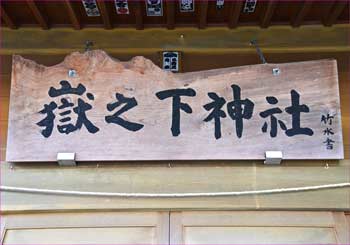 嶽之下神社
竹水書